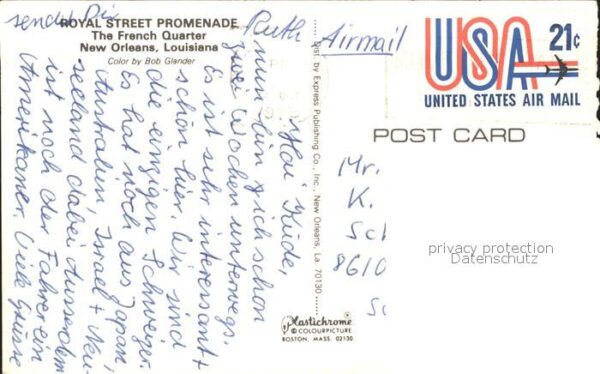 ROYAL STREET PROMENADE
The French Quarter
New Orleans, Louisiana
Color by Bob Glander
Hoi Küde,
nun bin ich schon
zwei Wochen unterwegs.
Es ist sehr interessant +
schön hier. Wir sind
die einzigen Schweizer.
Es hat noch aus Japan,
Australien, Israel + Neu-
seeland dabei. Ausserdem
ist noch der Fahrer ein
Amerikaner. Viele Grüsse
sendet Dir
Ruth
Dist. by Express Publishing Co., Inc., New Orleans, La. 70130
Plastichrome
® COLOURPICTURE
BOSTON, MASS. 02130
Airmail
USA 21c
UNITED STATES AIR MAIL
POST CARD
Mr.
K.
Sc
8610
privacy protection
Datenschutz